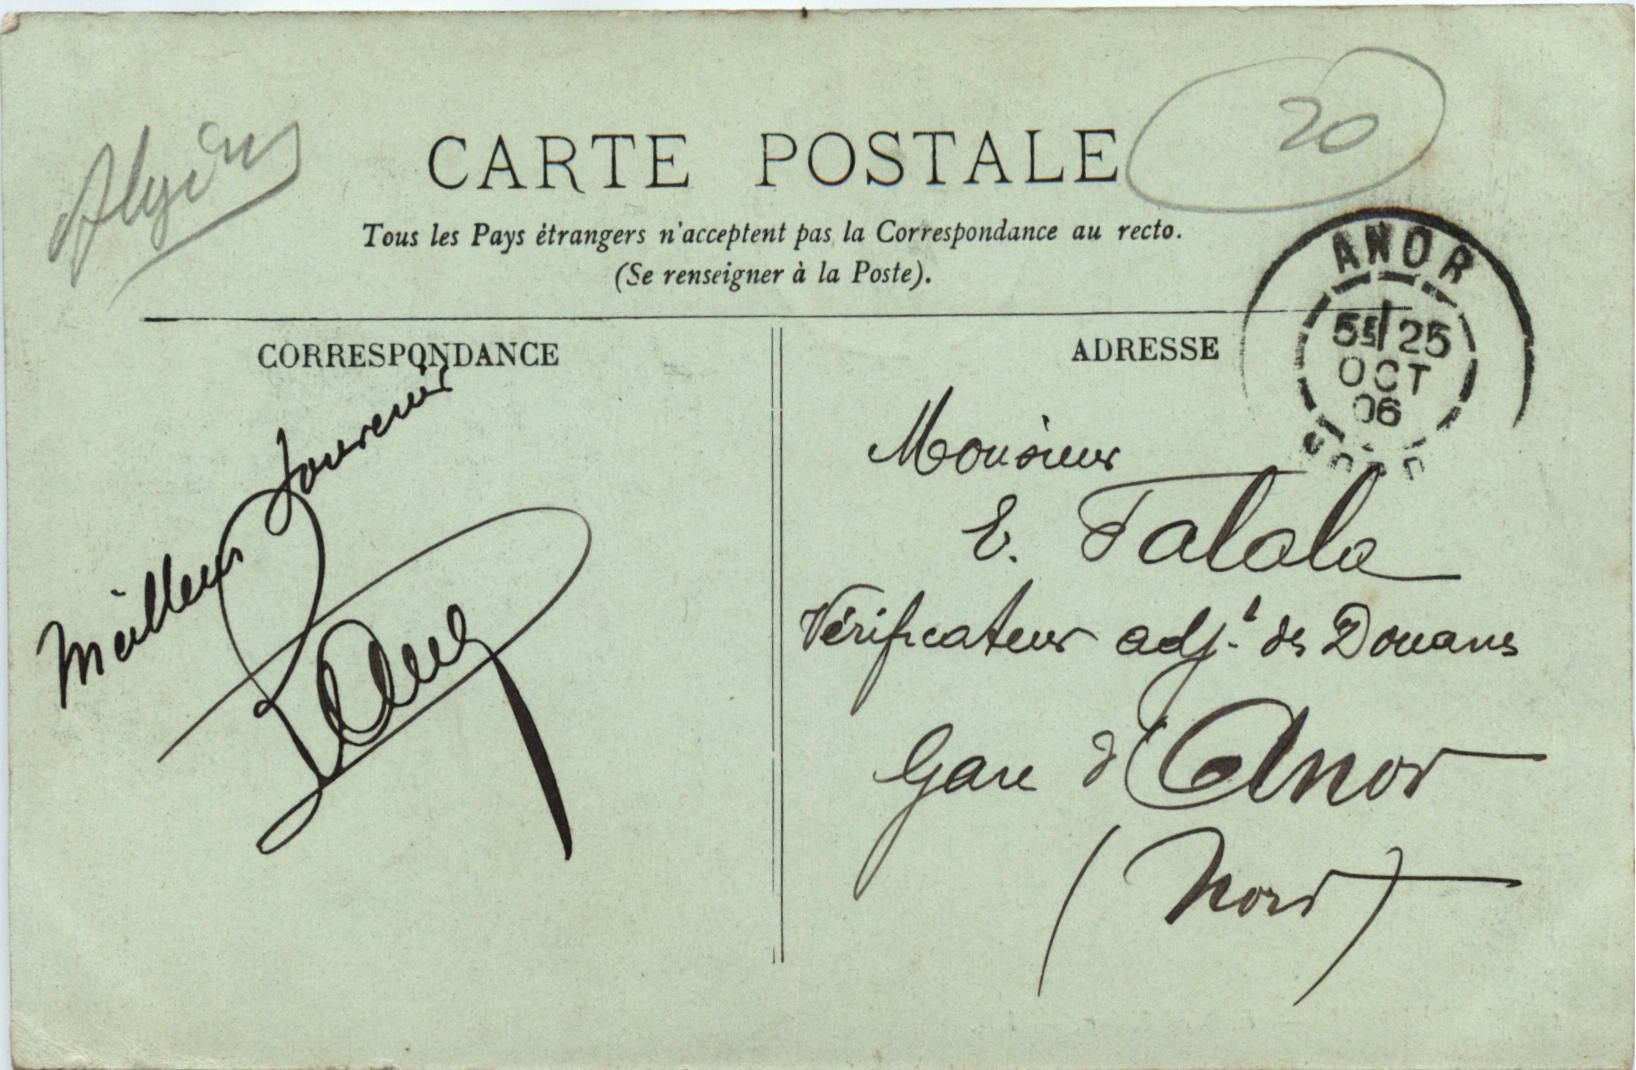 Algérie
20
CARTE POSTALE
Tous les Pays étrangers n'acceptent pas la Correspondance au recto.
(Se renseigner à la Poste).
CORRESPONDANCE
Meilleur souvenir
ADRESSE
ANOR
25
OCT
06
Monsieur
E. Talala
Vérificateur adj.t des Douanes
Gare d'Anor
(Nord)